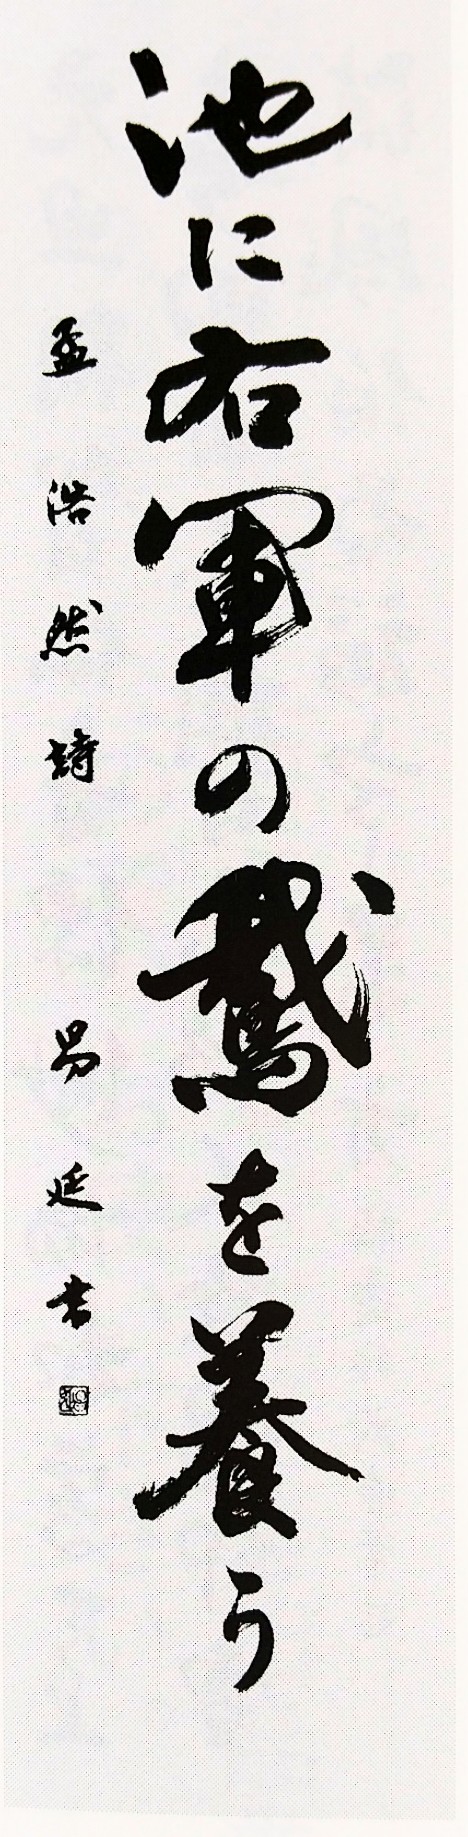 池に右軍の鵞を養う
孟浩然詩 昌延書